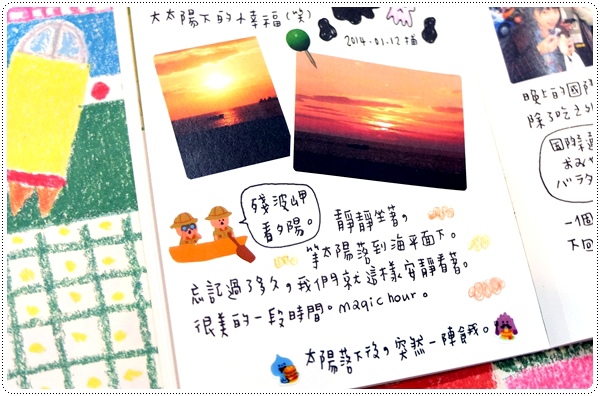 大太陽下的小幸福(笑)
2014.01.12 攝
殘波岬
看夕陽。
靜靜坐著,
等太陽落到海平面下。
忘記過了多久,我們就這樣安靜看著。
很美的一段時間。magic hour。
太陽落下後,突然一陣餓。
晚上的國際
除了吃之外
国際通
おみや
バラタ
一個
下回